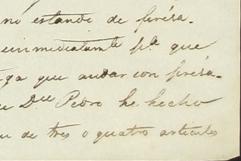 no estando de priesa.
inmediatamte pa que
ga que andar con priesa.
Dn Pedro he hecho
de tres o quatro articulos